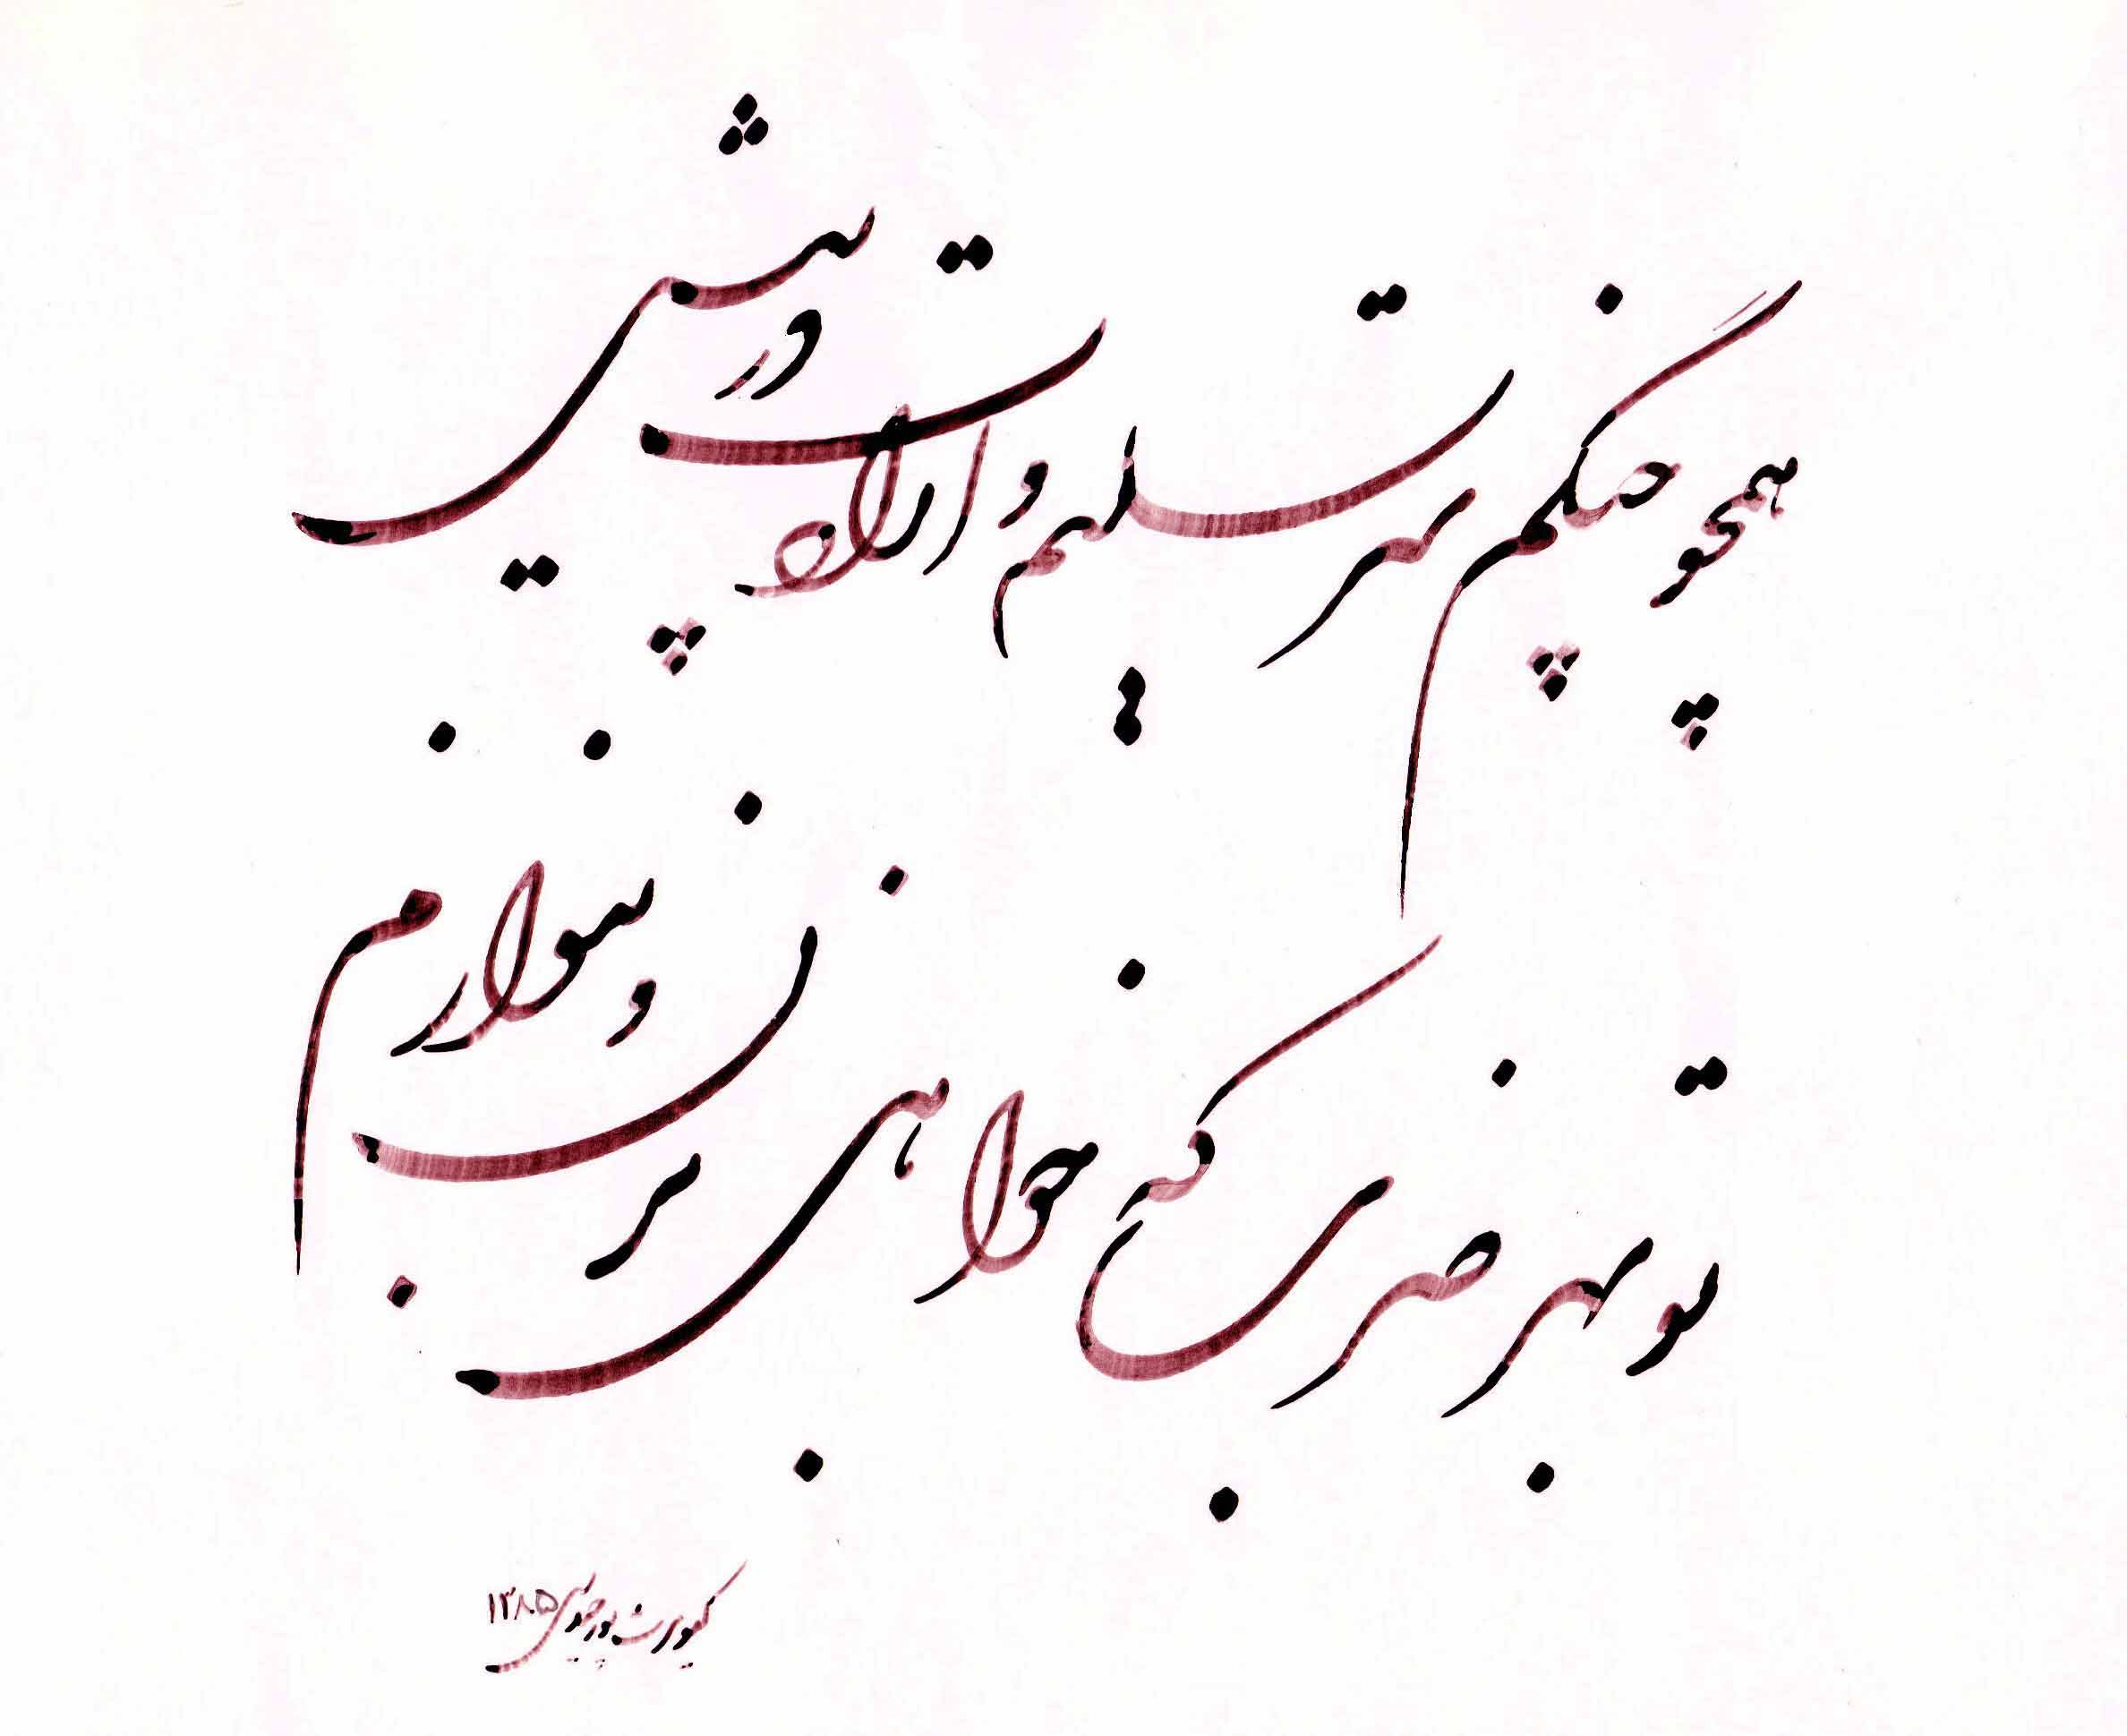 همچو چنگم سر تسلیم و ارادت در پیش
تو بهر ضرب که خواهی بزن و بنوازم
کیومرث پورچوبی ۱۳۸۵